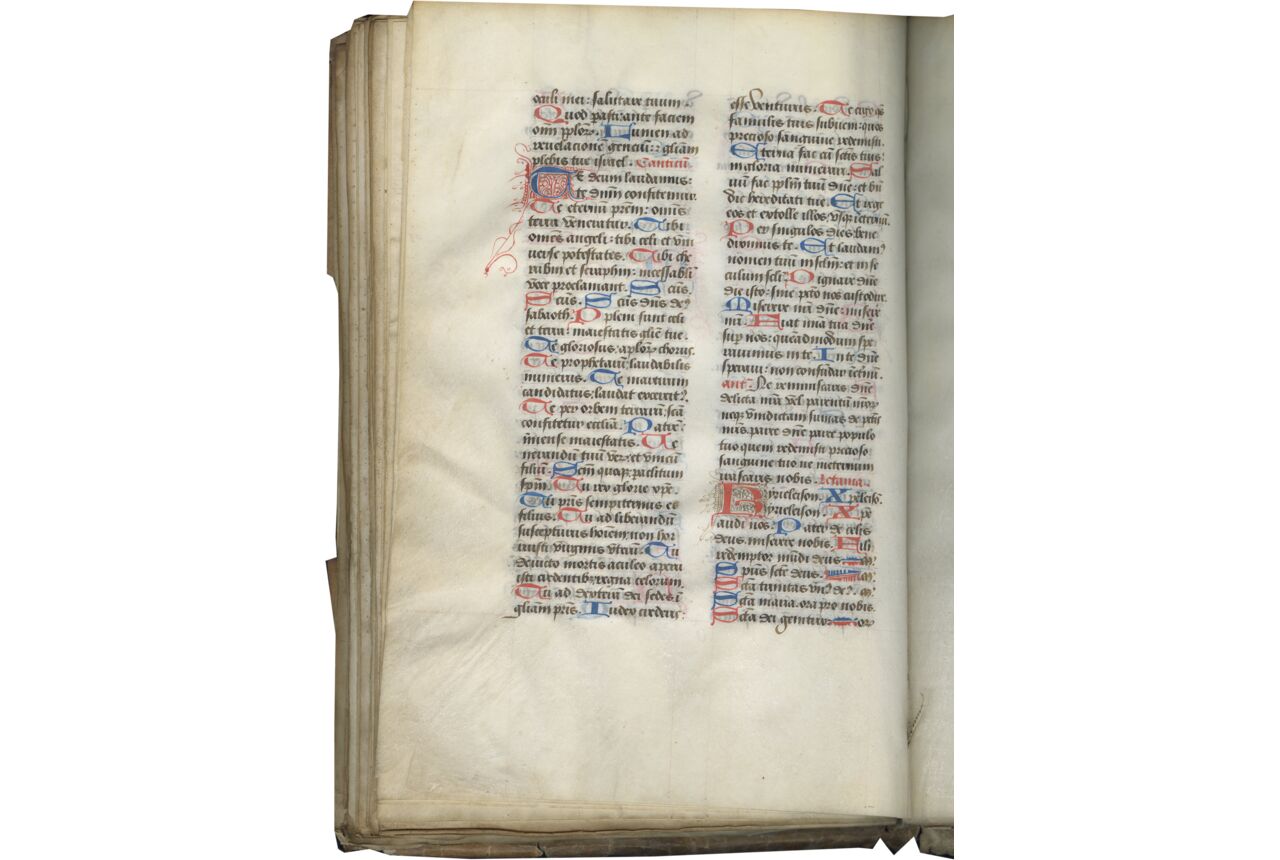 oculi mei: salutare tuum
Quod pasti: ante faciem
omn pplor. Lumen ad
reuelacione genciu: gliam
plebis tue israel. Canticu
Te deum laudamus:
te dnm confitemur.
Te eternu prem: omis
terra veneratur. Tibi
omes angeli: tibi celi et vni
uerse potestates. Tibi che
rubin et seraphin: incessabli
voce proclamant. Scus.
Scus. Scus dns de9
sabaoth. Pleni sunt celi
et terra: maiestatis glie tue.
Te gloriosus: aplor chorus.
Te prophetaru: laudabilis
numerus. Te martirum
candidatus: laudat exercit9.
Te per orbem terraru: sca
confitetur ecclia. Patre
immense maiestatis. Ue
nerandu tuu ver: et vnicu
filiu. Scm quoq: paclitum
spm. Tu rex glorie xpe.
Tu pris sempiternus es
filius. Tu ad liberandu
suscepturus hoiem: non hor
ruisti virginis vteru. Tu
deuicto mortis aculeo aperu
isti credentib: regna celorum.
Tu ad dexteru dei sedes i
gliam pris. Iudex crederis
esse venturus. Te ergo qs
famulis tuis subueni: quos
precioso sanguine redemisti.
Eterna fac cu scis tuis:
in gloria numerari. Sal
uu fac pplm tuu dne: et bn
dic hereditati tue. Et rege
eos et extolle illos: vsq: in eternu.
Per singulos dies: bene
dicimus te. Et laudam9
nomen tuu in sclm: et in se
culum scli. Dignare dne
die isto: sine pcto nos custodire.
Miserere nri dne: misere
nri. Fiat mia tua dne
sup nos: queadmodum spe
rauimus in te. In te dne
speraui: non confundar ieternu.
ant. Ne reminiscaris dne
delicta nra vel parentu nror
neq: vindictam sumas de pctis
nris parce dne parce populo
tuo quem redemisti precioso
sanguine tuo ne ineternum
irascaris nobis. Letania.
Kyrieleison. Xpeleiso.
Kyrieleison. Xpe
audi nos. Pater de celis
deus. miserere nobis. Fili
redemptor mudi deus. m
Spirit9 scte deus. m
Scta trinitas vn9 de9. m
Scta maria. ora pro nobis.
Scta dei genitrix. or